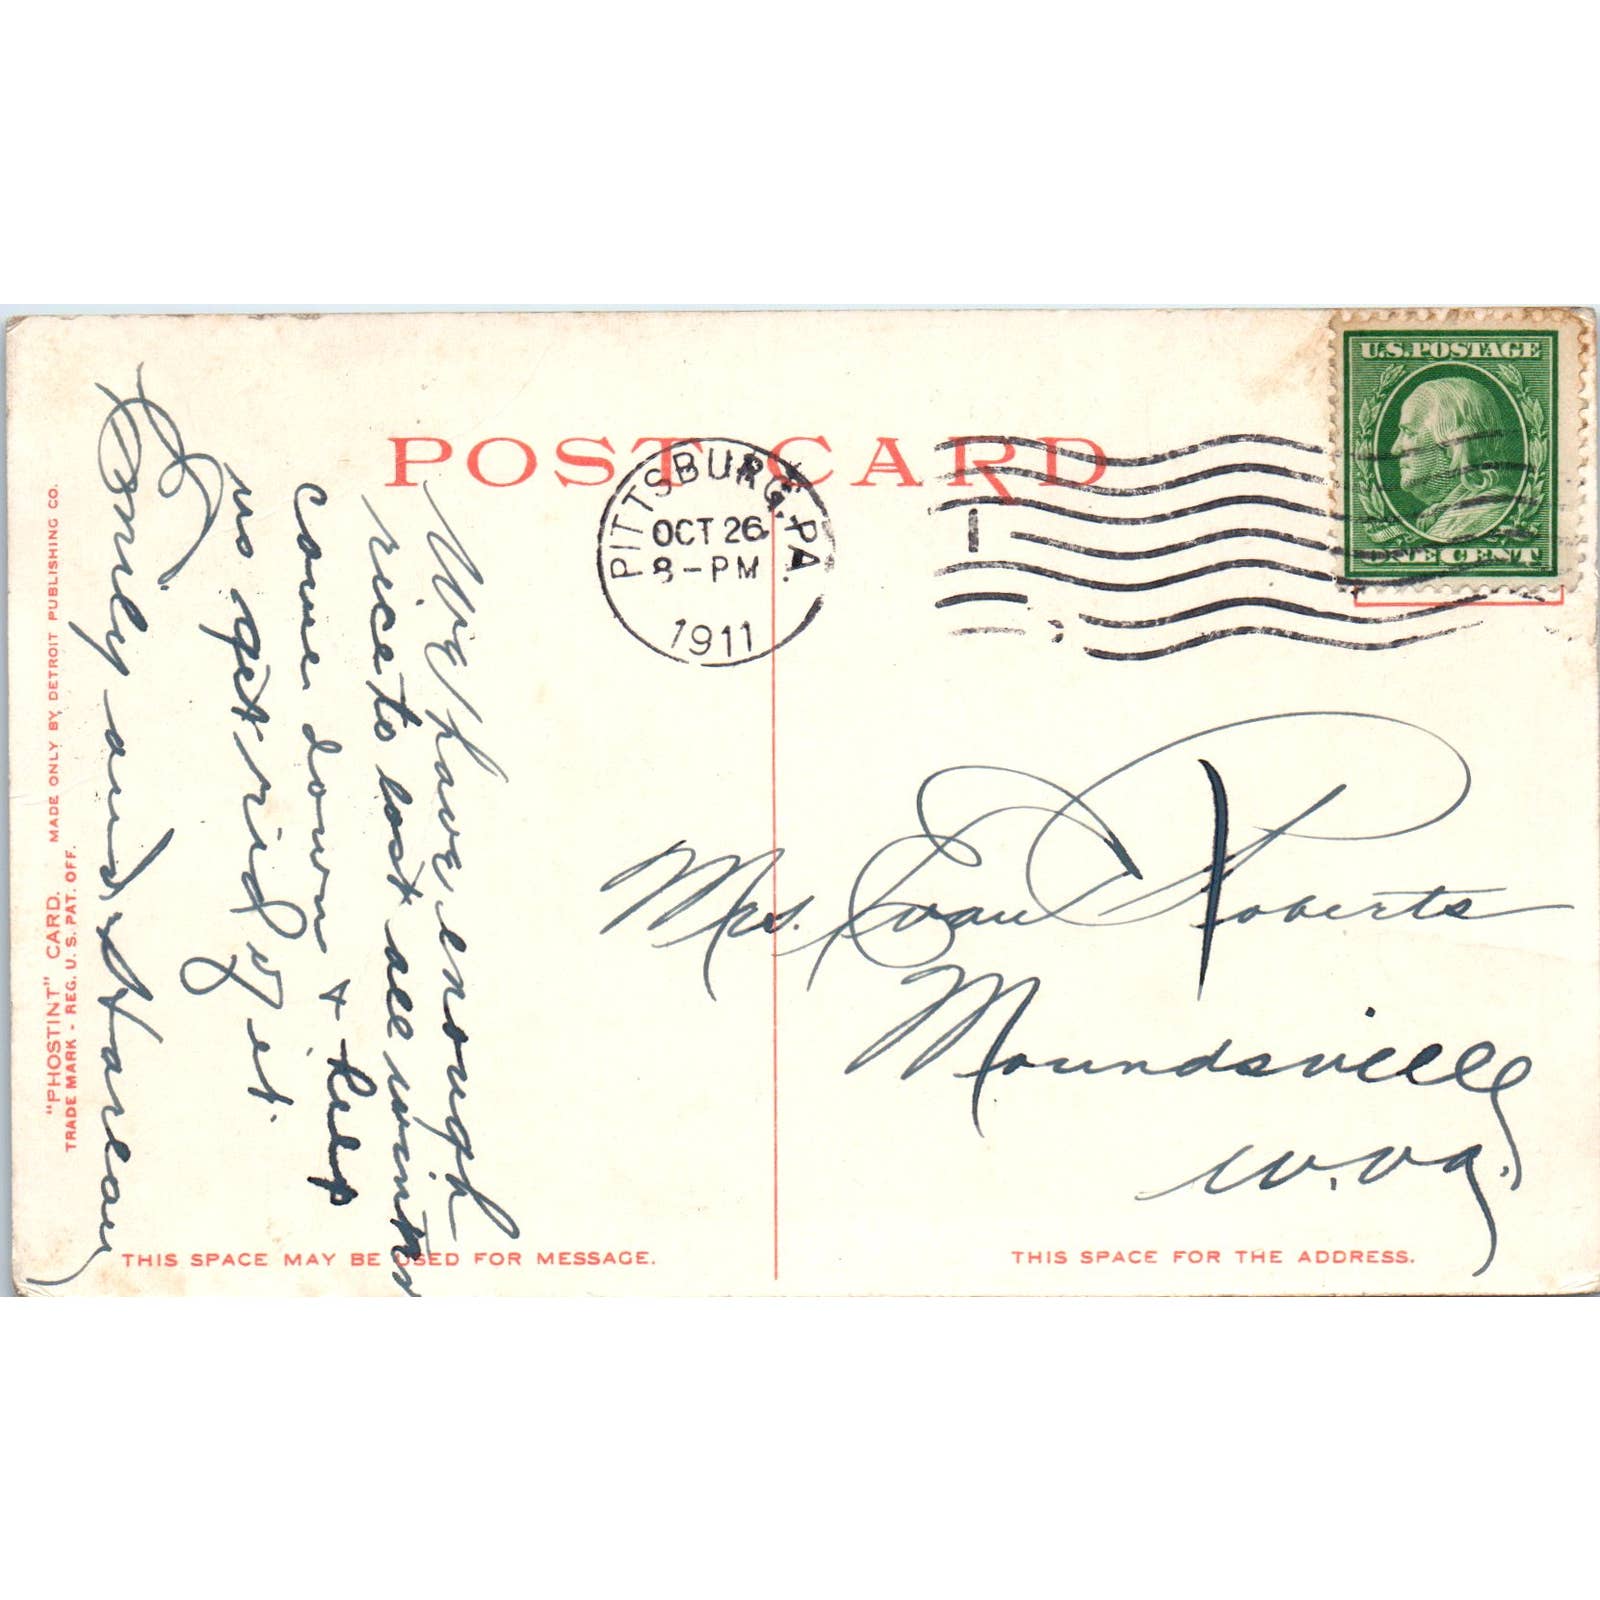 POST CARD
PITTSBURG, PA.
OCT 26
8-PM
1911
U.S. POSTAGE
ONE CENT
We have enough
rice to last all winter
come down + help
us get rid of it.
Emily and
Mrs. Evan Roberts
Moundsville
W. Va.
THIS SPACE MAY BE USED FOR MESSAGE.
THIS SPACE FOR THE ADDRESS.
"PHOSTINT" CARD. MADE ONLY BY DETROIT PUBLISHING CO.
TRADE MARK - REG. U. S. PAT. OFF.